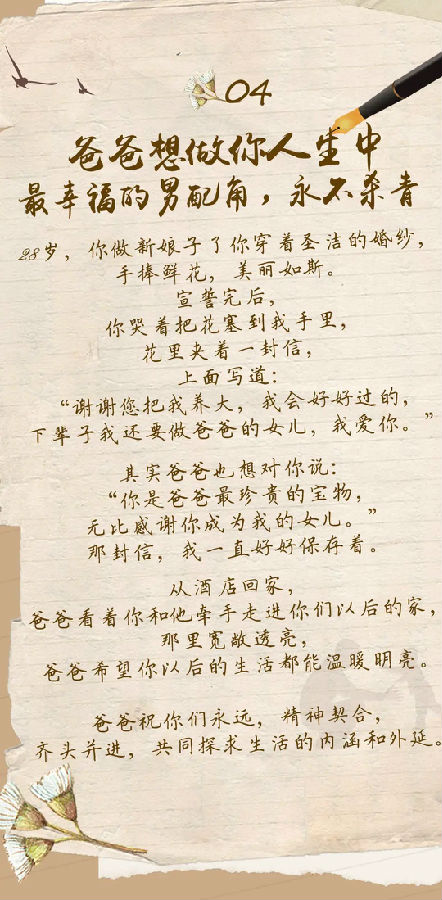 04
爸爸想做你人生中
最幸福的男配角，永不杀青
28岁，你做新娘子了你穿着圣洁的婚纱，
手捧鲜花，美丽如斯。
宣誓完后，
你哭着把花塞到我手里，
花里夹着一封信，
上面写道：
“谢谢您把我养大，我会好好过的，
下辈子我还要做爸爸的女儿，我爱你。”
其实爸爸也想对你说：
“你是爸爸最珍贵的宝物，
无比感谢你成为我的女儿。”
那封信，我一直好好保存着。
从酒店回家，
爸爸看着你和他牵手走进你们以后的家，
那里宽敞透亮，
爸爸希望你以后的生活都能温暖明亮。
爸爸祝你们永远，精神契合，
齐头并进，共同探求生活的内涵和外延。